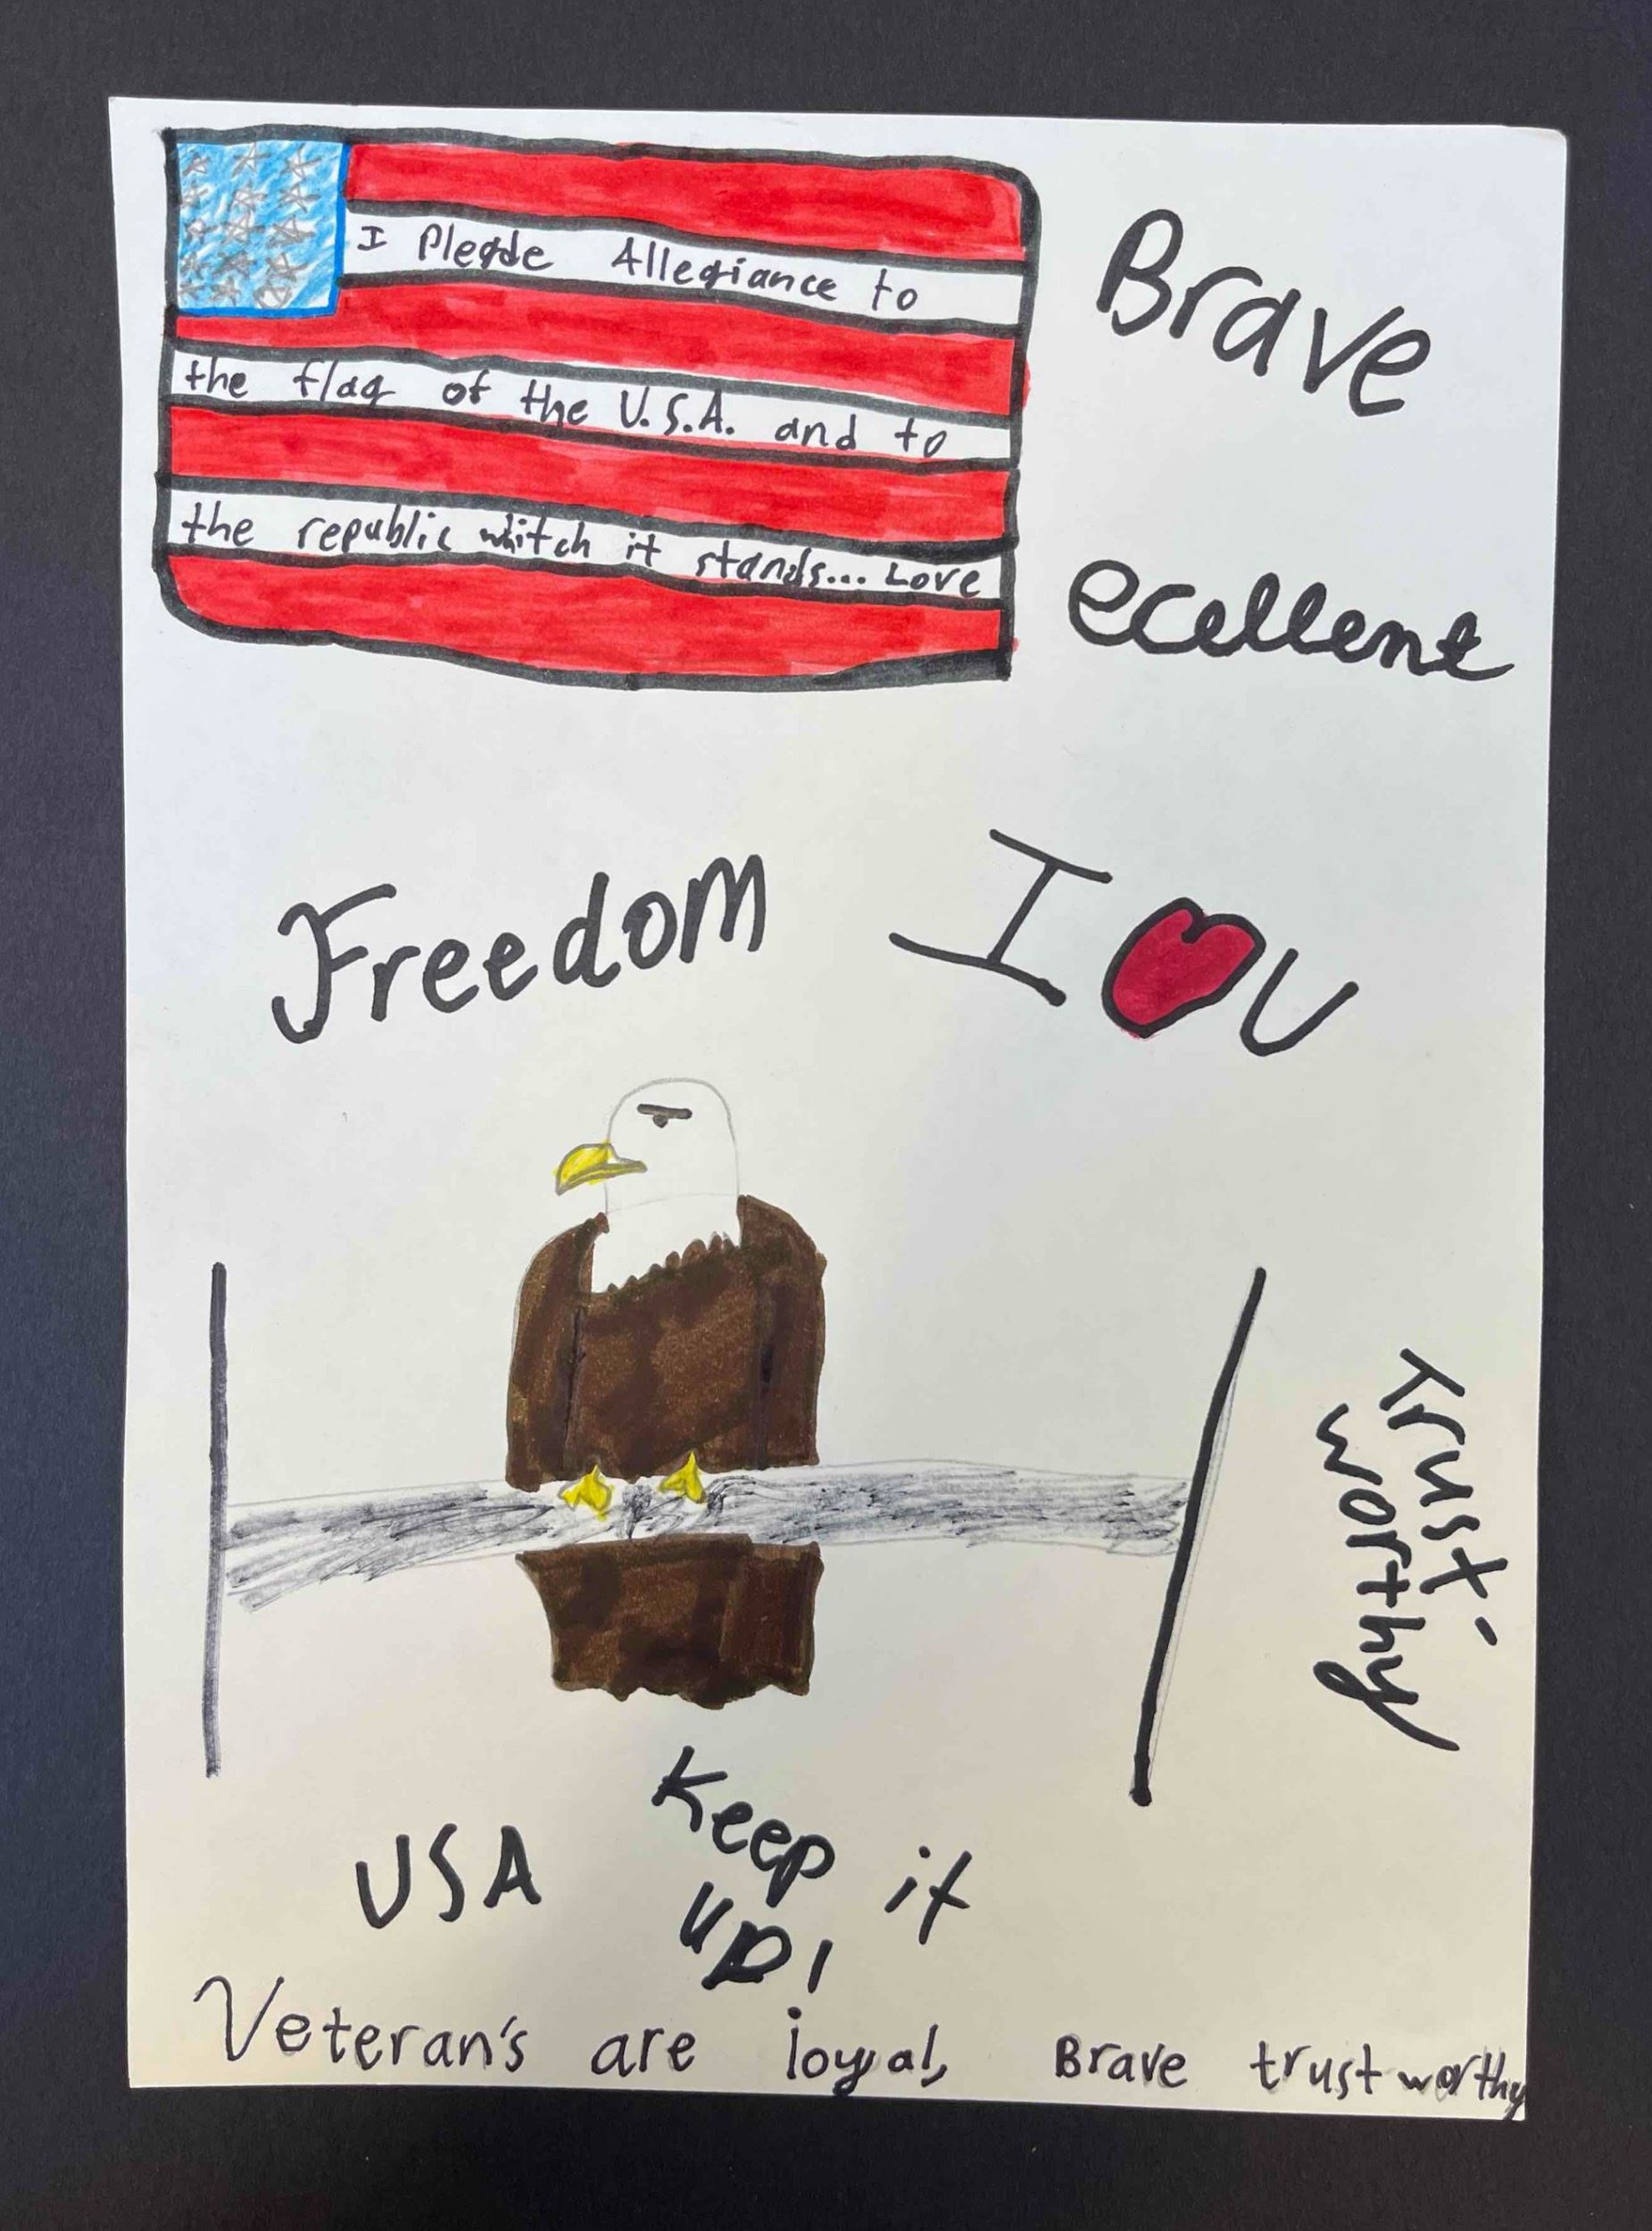 I Plegde Allegiance to
the flag of the U.S.A. and to
the republic whitch it stands... Love
Brave
ecellent
Freedom
I ❤ U
Trust-
worthy
USA
Keep it
UP!
Veteran's are loyal, Brave trustworthy